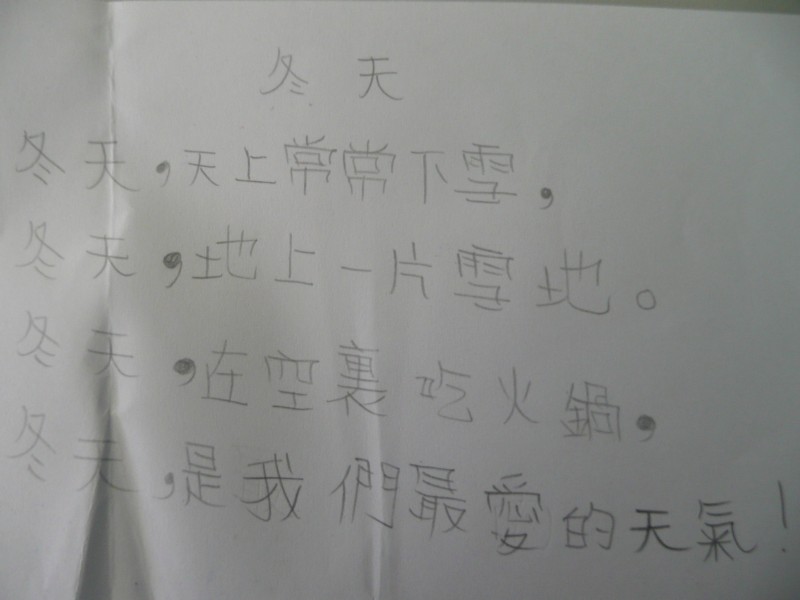 冬天
冬天,天上常常下雪,
冬天,地上一片雪地。
冬天,在空裏吃火鍋,
冬天,是我們最愛的天氣!